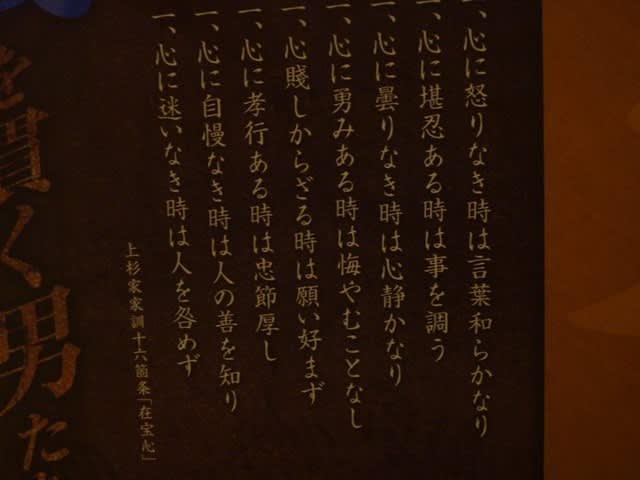 一、心に怒りなき時は言葉和らかなり
一、心に堪忍ある時は事を調う
一、心に曇りなき時は心静かなり
一、心に勇みある時は悔やむことなし
一、心賤しからざる時は願い好まず
一、心に孝行ある時は忠節厚し
一、心に自慢なき時は人の善を知り
一、心に迷いなき時は人を咎めず
上杉家家訓十六箇条「在宝心」
を貫く男た